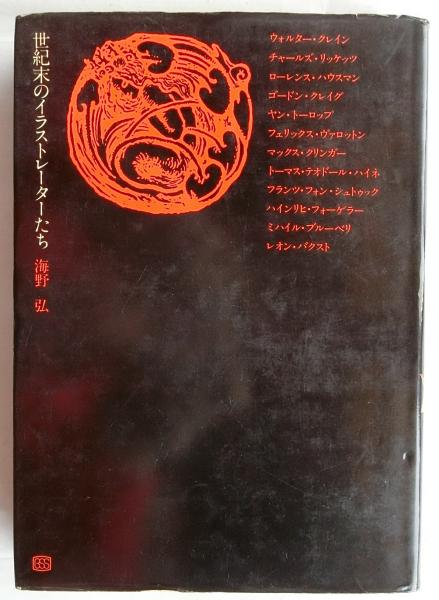 世紀末のイラストレーターたち 海野 弘
ウォルター・クレイン
チャールズ・リッケッツ
ローレンス・ハウスマン
ゴードン・クレイグ
ヤン・トーロップ
フェリックス・ヴァロットン
マックス・クリンガー
トーマス・テオドール・ハイネ
フランツ・フォン・シュトゥック
ハインリヒ・フォーゲラー
ミハイル・ブルーベリ
レオン・バクスト
BSS